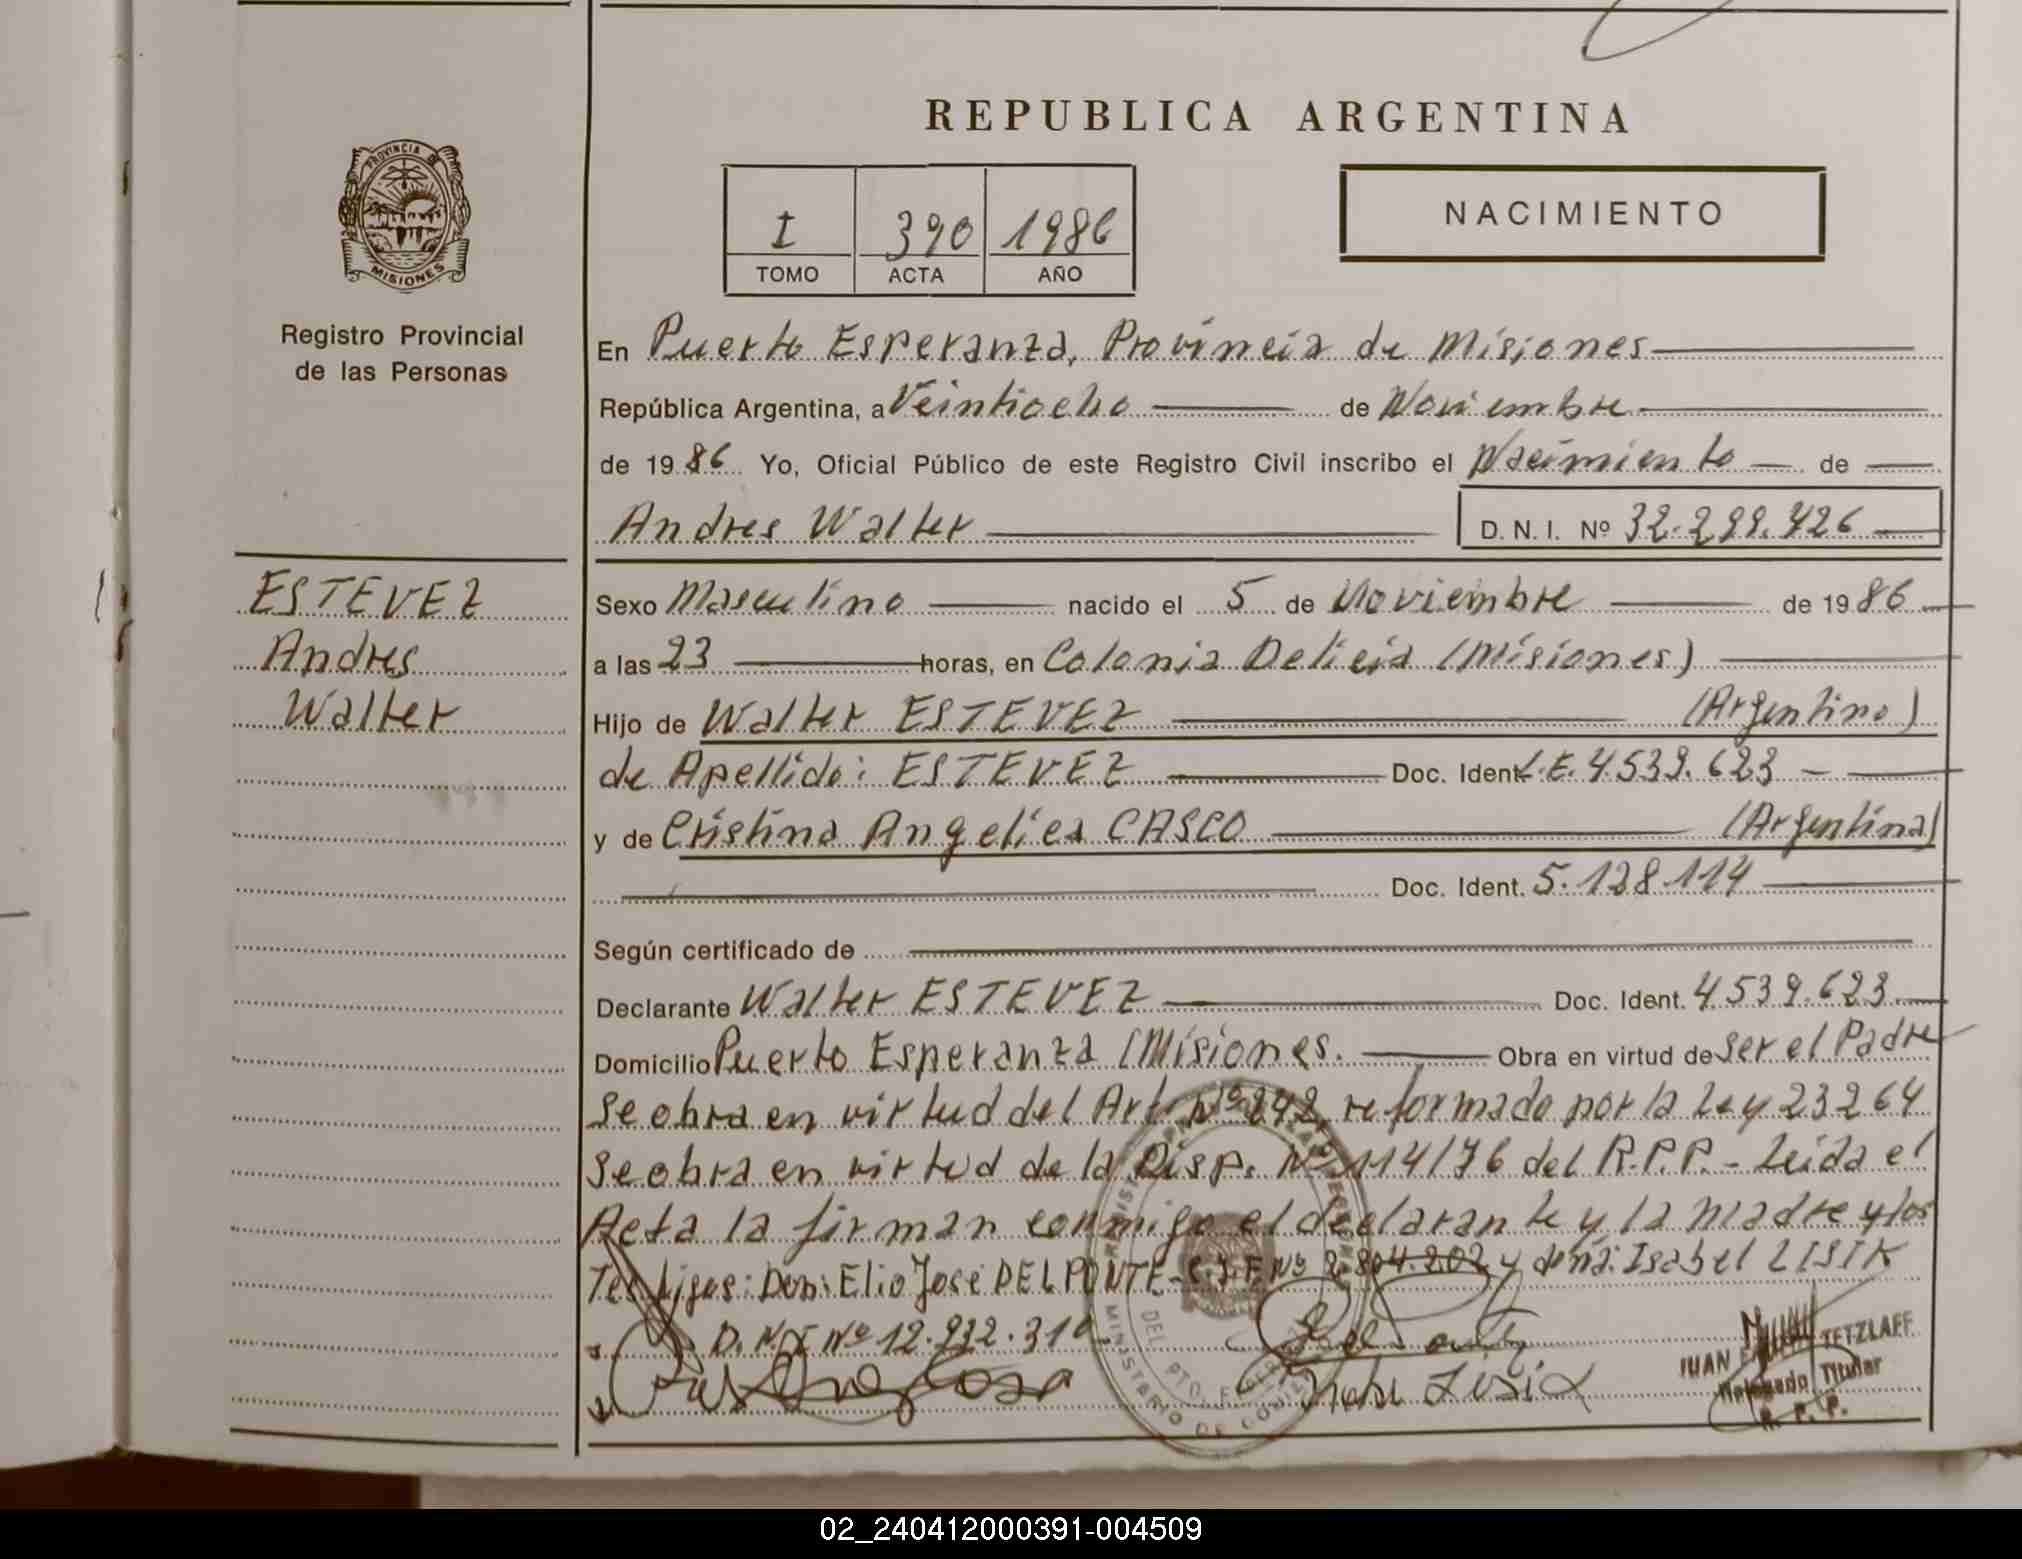 REPUBLICA ARGENTINA
PROVINCIA DE
MISIONES
Registro Provincial
de las Personas
I 390 1986
TOMO ACTA AÑO
NACIMIENTO
En Puerto Esperanza, Provincia de Misiones
República Argentina, a Veintiocho de Noviembre
de 1986 Yo, Oficial Público de este Registro Civil inscribo el Nacimiento de
Andres Walter D.N.I. Nº 32.299.426
ESTEVEZ
Andres
Walter
Sexo Masculino nacido el 5 de Noviembre de 1986
a las 23 horas, en Colonia Delicia (Misiones)
Hijo de Walter ESTEVEZ (Argentino)
de Apellido: ESTEVEZ Doc. Ident. L.E. 4.539.623
y de Cristina Angelica CASCO (Argentina)
Doc. Ident. 5.128.114
Según certificado de
Declarante Walter ESTEVEZ Doc. Ident. 4.539.623
Domicilio Puerto Esperanza (Misiones. Obra en virtud de Ser el Padre
Se obra en virtud del Art. Nº 242, reformado por la Ley 23264
Se obra en virtud de la Disp. Nº 114/76 del R.P.P.- Leida el
Acta la firman conmigo el declarante y la madre y los
Testigos: Don: Elio José DEL PONTE - C.I.F. Nº 2.804.202 y doña: Isabel LISIK
D.N.I Nº 12.932.310
JUAN TETZLAFF
Delegado Titular
R. P. P.
MINISTERIO DE
DEL PTO.
02_240412000391-004509